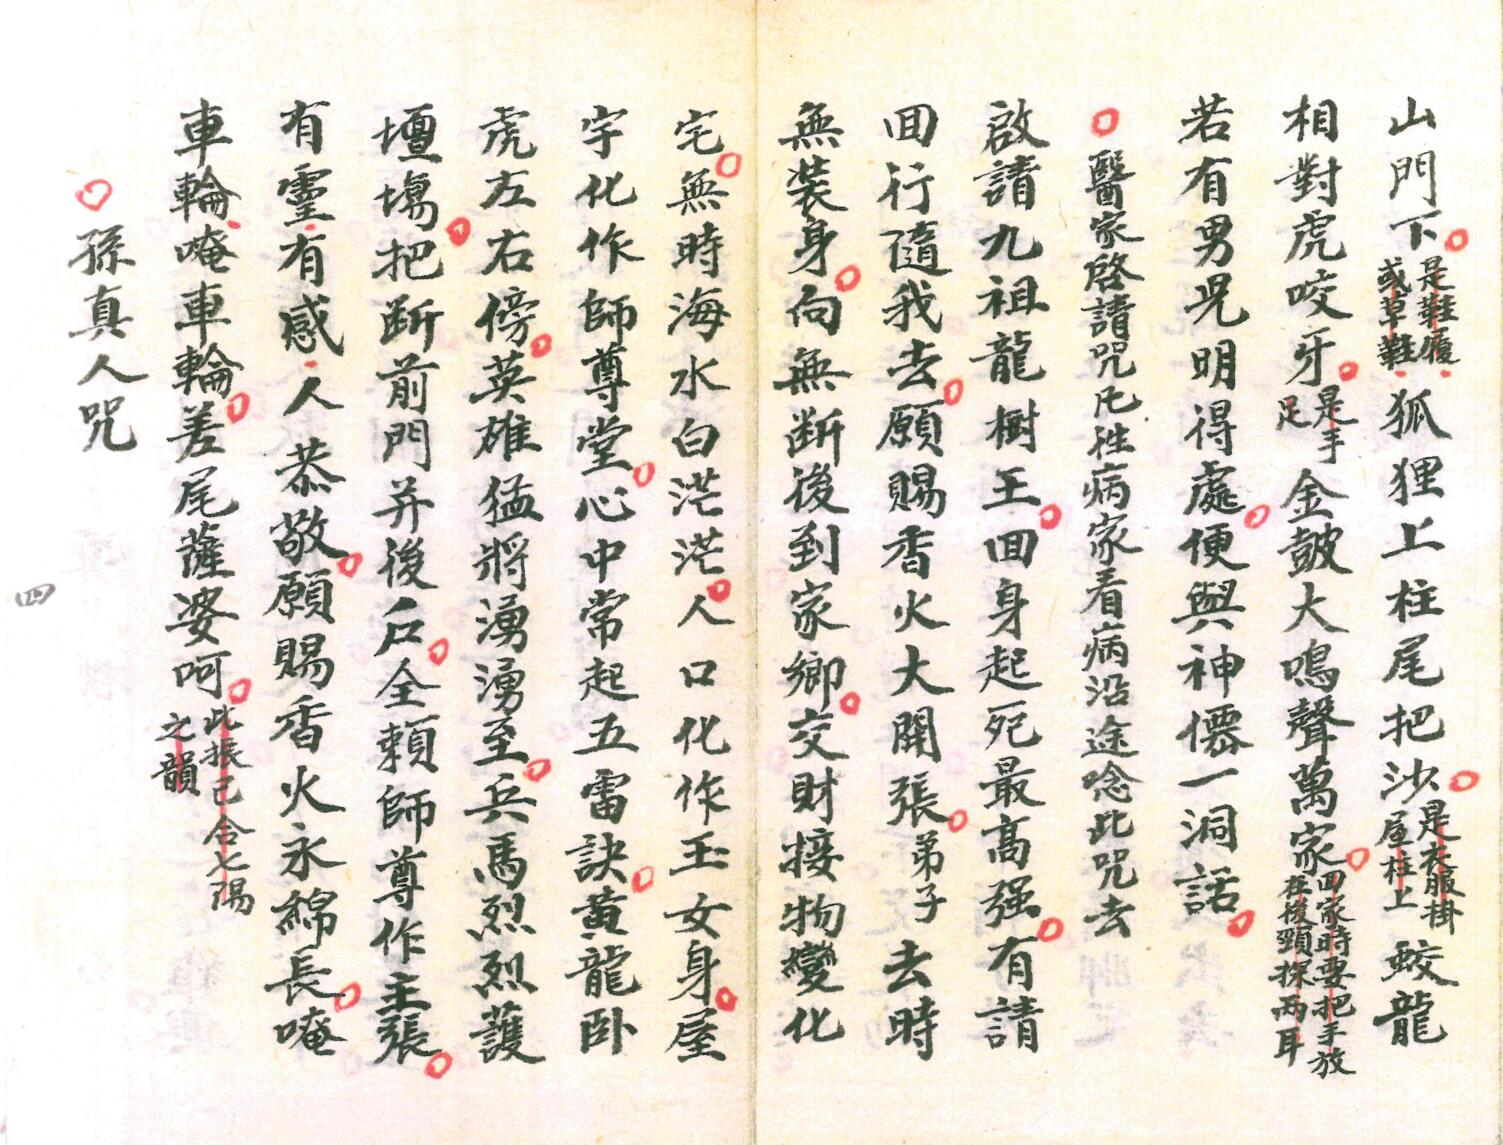 山門下是鞋履或草鞋狐狸上柱尾把沙是衣服掛屋柱上蛟龍
相對虎咬牙是手足金皷大鳴聲萬家回家時要把手放在後頸探兩耳
若有男児明得處便與神僊一洞話
醫家啓請咒凡往病家看病沿途唸此咒去
啟請九祖龍樹王回身起死最高强有請
回行隨我去願賜香火大開張弟子去時
無裝身向無断後到家鄉交財接物變化
宅無時海水白茫茫人口化作玉女身屋
宇化作師尊堂心中常起五雷訣黃龍卧
虎左右傍英雄猛將湧湧至兵馬烈烈護
壇塲把断前門并後户全賴師尊作主張
有靈有感人恭敬願賜香火永綿長唵
車輪唵車輪差尾薩婆呵此振己合七陽之韻
孫真人咒
四